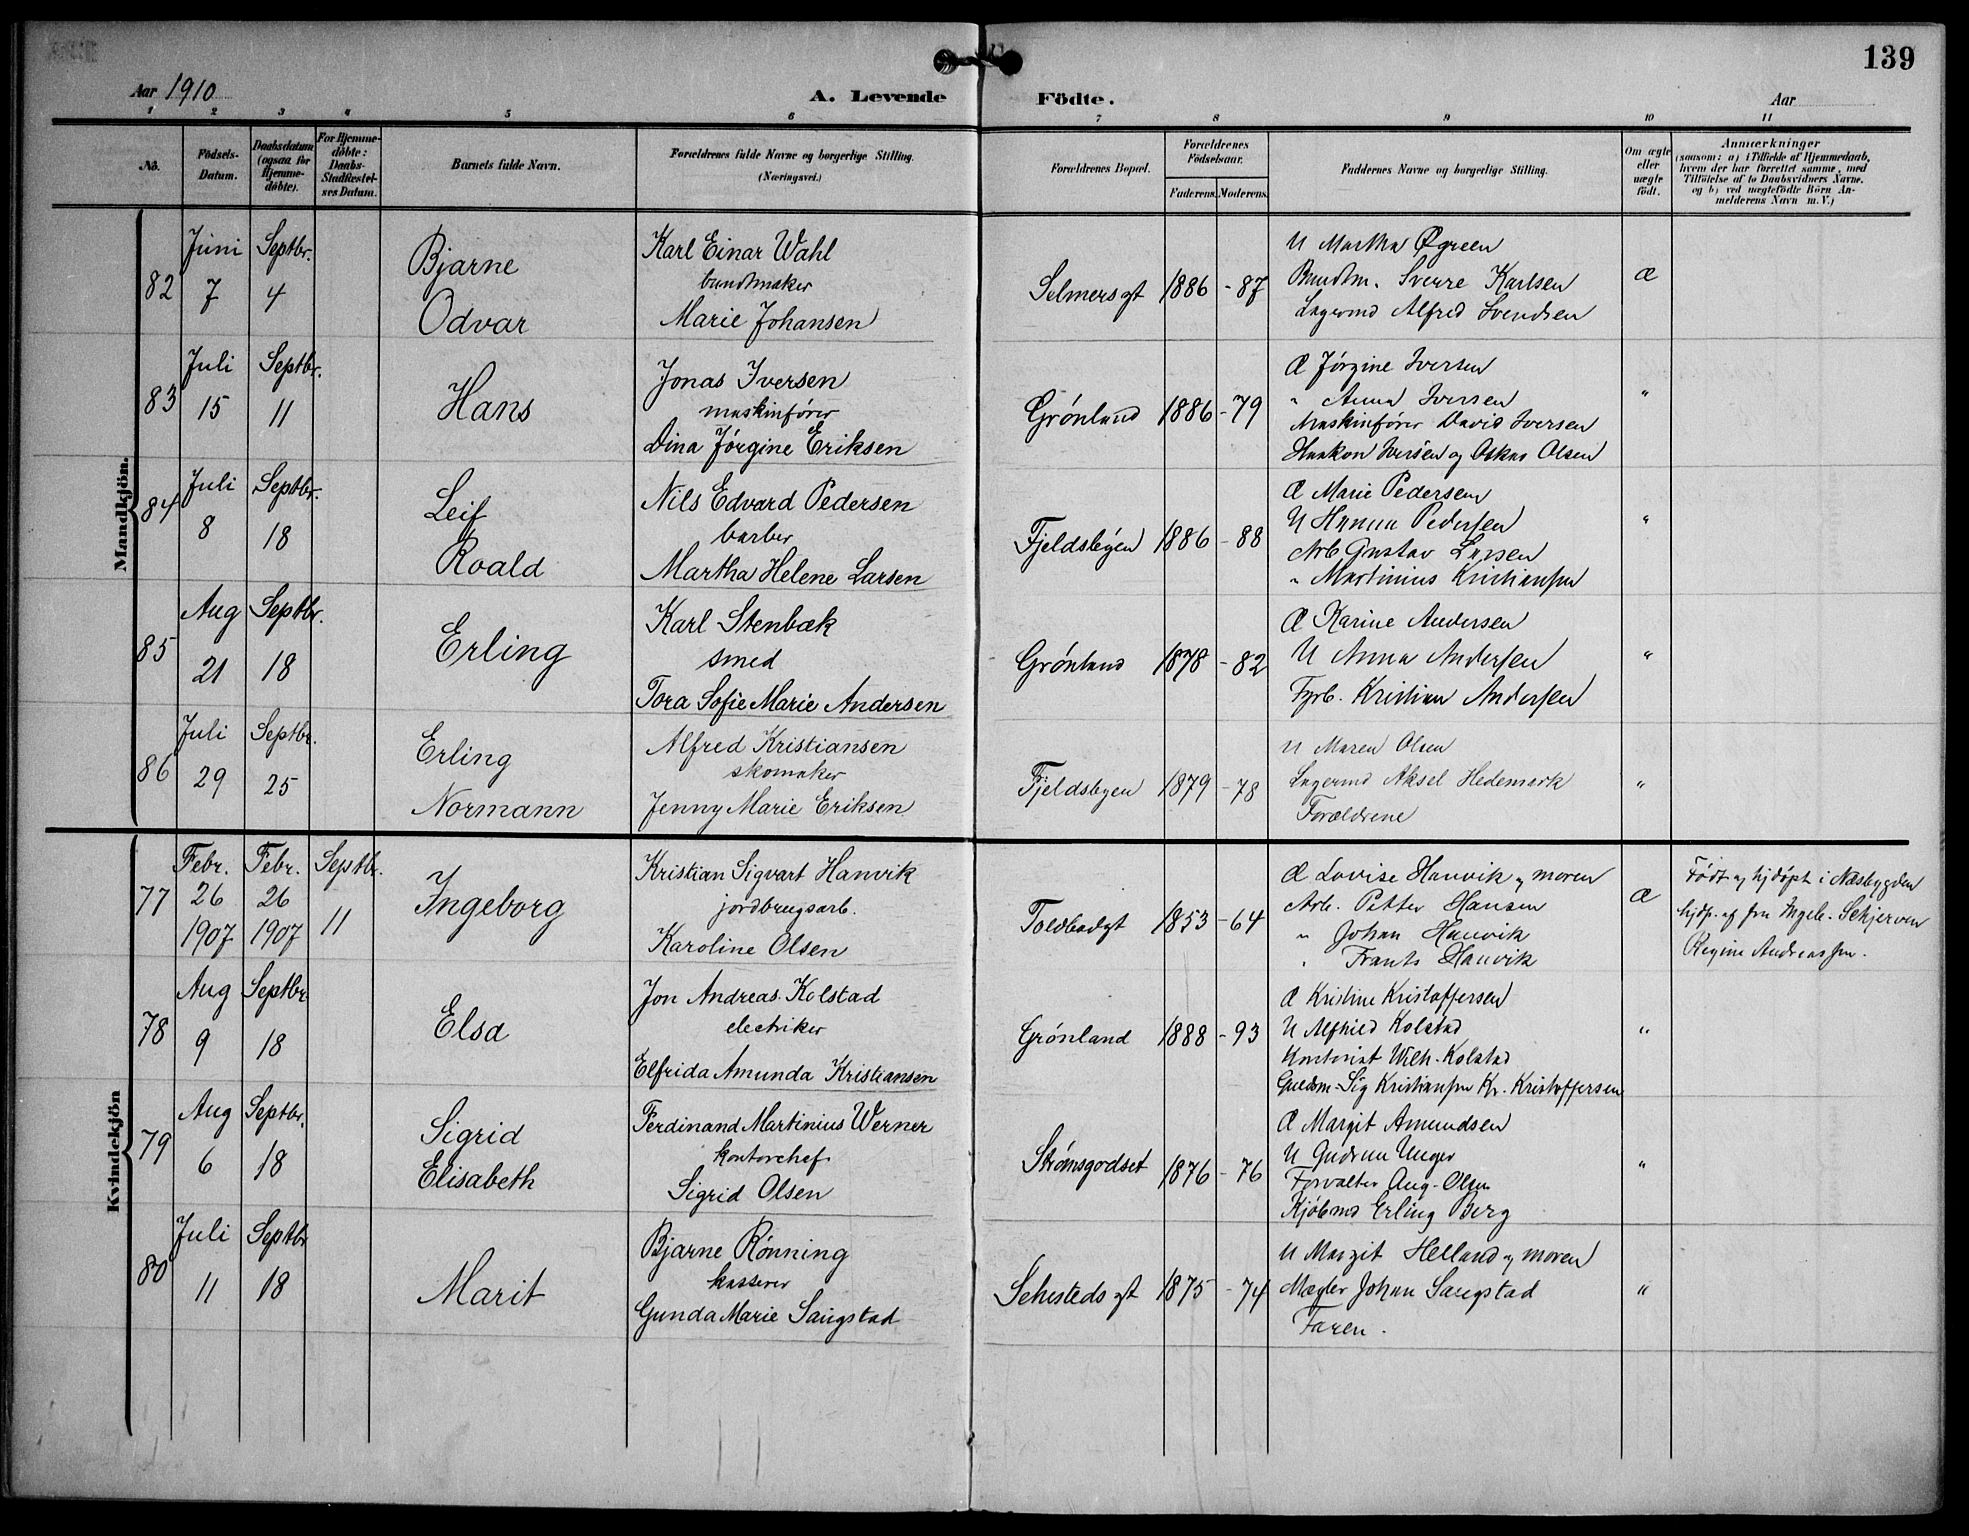 139
Aar 1910
A. Levende Födte.
Aar
1 2 3 4 5 6 7 8 9 10 11
No.
Födsels-Datum.
Daabsdatum (ogsaa for Hjemme-döbte).
For Hjemme-döbte: Daabs-Stadfæstel-ses Datum.
Barnets fulde Navn.
Forældrenes fulde Navne og borgerlige Stilling. (Næringsvei.)
Forældrenes Bopæl.
Forældrenes Födselsaar.
Faderens. Moderens.
Faddernes Navne og borgerlige Stilling.
Om ægte eller uægte födt.
Anmærkninger
(saasom: a) i Tilfælde af Hjemmedaab, hvem der har forrettet samme, med Tilföielse af to Daabsvidners Navne. og b) ved uægtefödte Börn An-melderens Navn m. V.)
Mandkjön.
82
Juni 7
Septbr. 4
Bjarne Odvar
Karl Einar Wahl
bundtmaker
Marie Johansen
Selmersgt
1886 - 87
U Martha Øgreen
Bundtm. Sverre Karlsen
Lagermd Alfred Svendsen
Æ
83
Juli 15
Septbr. 11
Hans
Jonas Iversen
maskinfører
Dina Jørgine Eriksen
Grønland
1886 - 79
Æ Jørgine Iversen
" Anna Iversen
Maskinfører David Iversen
Haakon Iversen og Oskar Olsen
"
84
Juli 8
Septbr. 18
Leif Roald
Nils Edvard Pedersen
barber
Martha Helene Larsen
Fjeldsbyen
1886 - 88
Æ Marie Pedersen
U Hanna Pedersen
Arb Gustav Larsen
" Martinius Kristiansen
"
85
Aug 21
Septbr. 18
Erling
Karl Stenbæk
smed
Tora Sofie Marie Andersen
Grønland
1878 - 82
Æ Karine Andersen
U Anna Andersen
Fyrb. Kristian Andersen
"
86
Juli 29
Septbr. 25
Erling Normann
Alfred Kristiansen
skomaker
Jenny Marie Eriksen
Fjeldsbyen
1879 - 78
U Maren Olsen
Lagermd Aksel Hedemark
Forældrene
"
Kvindekjön
77
Febr. 26 1907
Febr. 26 1907
Septbr. 11
Ingeborg
Kristian Sigvart Hanvik
jordbrugsarb.
Karoline Olsen
Toldbodgt
1853 - 64
Æ Lovise Hanvik og moren
Arb. Petter Hansen
" Johan Hanvik
" Frants Hanvik
Æ
Født og hjdøpt i Næsbygden
hjdp. af fru Ingeb. Schjerven
Regine Andreassen.
78
Aug 9
Septbr 18
Elsa
Jon Andreas Kolstad
electriker
Elfrida Amunda Kristiansen
Grønland
1888 - 93
Æ Kristine Kristoffersen
U Alfhild Kolstad
Kontorist Wilh. Kolstad
Guldsm. Sig Kristiansen Kr. Kristoffersen
"
79
Aug 6
Septbr. 18
Sigrid Elisabeth
Ferdinand Martinius Werner
kontorchef
Sigrid Olsen
Strømsgodset
1876 - 76
Æ Margit Amundsen
U Gudrun Unger
Forvalter Aug. Olsen
Kjøbmd Erling Berg
"
80
Juli 11
Septbr 18
Marit
Bjarne Rønning
kasserer
Gunda Marie Saugstad
Sehestedsgt
1875 - 74
U Margit Helland og moren
Mægler Johan Saugstad
Faren.
"